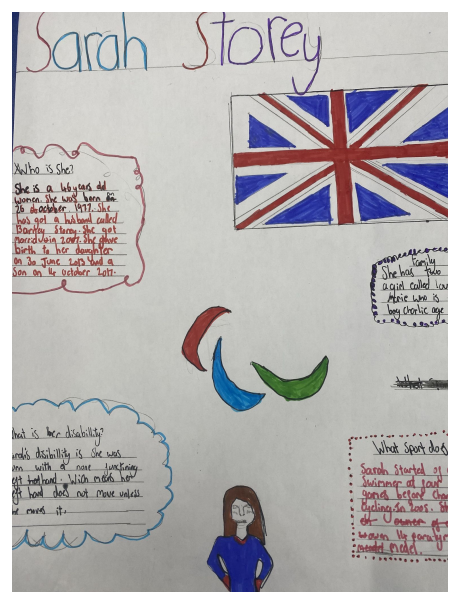 Sarah Storey
Who is She?
She is a 46 years old
women. She was born
26 october 1977. She
has got a husband called
Barney Storey. She got
2007. She gave
birth to her daughter
on 30 June 2013 and a
Son on 14 october 2017.
family
She has two
a girl called
who is
boy charlie age
What
What is her disability?
disibility is She was
with a none
left hand. Wich means her
left hand does not move unless
moves it.
What Sport does
Sarah Started of
Swimmer at four
games before
Cycling in 2005.
women 14
model.